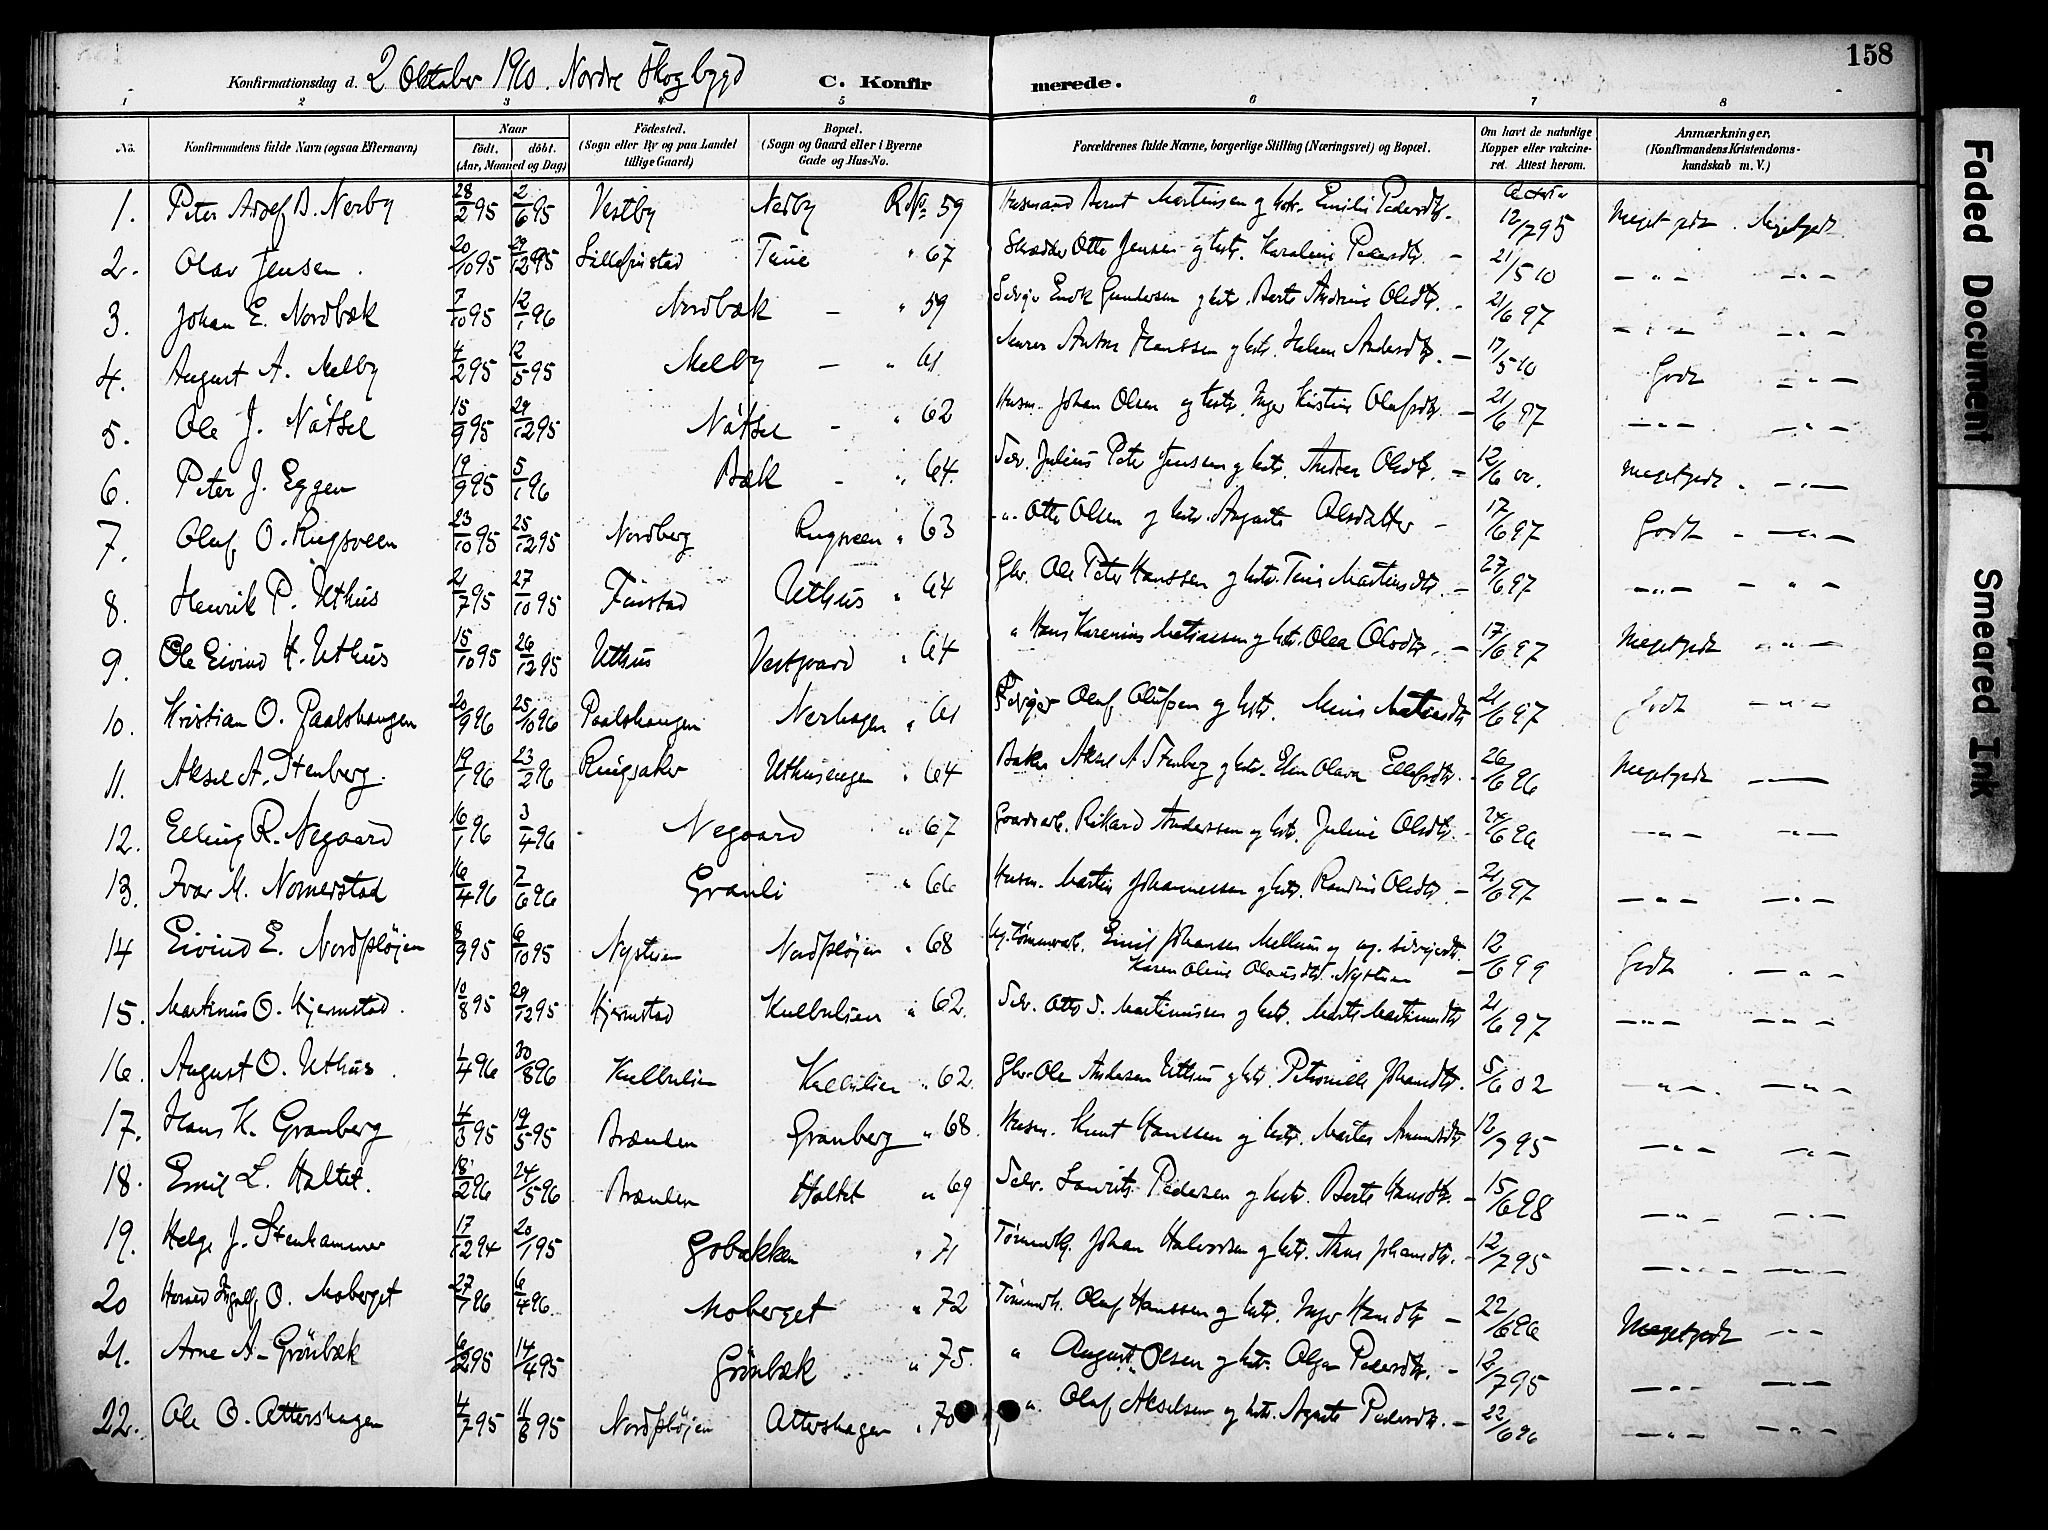 158
Konfirmationsdag d. 2 Oktober 1910. Nordre Skogbygd C. Konfirmerede.
1 2 3 4 5 6 7 8
No. Konfirmandens fulde Navn (ogsaa Efternavn) Naar født. døbt. (Aar, Maaned og Dag) Födested. (Sogn eller By og paa Landet tillige Gaard) Bopæl. (Sogn og Gaard eller i Byerne Gade og Hus-No. Forældrenes fulde Navne, borgerlige Stilling (Næringsvei) og Bopæl. Om havt de naturlige Kopper eller vaccineret. Attest herom. Anmærkninger, (Konfirmandens Kristendomskundskab m. V.)
1. Peter B. Nerby 28/2 95 2/6 95 Vestby Nerby R No 59 Husmand Bernt Martinsen og hstr. Emilie Pedersdtr. 12/7 95 Meget godt. Meget godt
2. Olav Jensen. 20/10 95 29/12 95 67 Skrædder Otto Jensen og hstr. Karoline Pedersdtr. - 21/5 10 - " - - " -
3. Johan E. Nordbæk 7/10 95 12/1 96 Nordbæk - " 59 Enok Gundersen og hstr. Berte Olsdtr. - 21/6 97 - " - - " -
4. August A. Melby 4/2 95 12/5 95 Melby - " 61 Murer Anton Hanssen og hstr. Helene Andersdtr. - 17/5 10 Godt - " -
5. Ole J. Nätsel 15/9 95 29/12 95 Nätsel - " 62 Husm. Johan Olsen og hstr. Inger Kristine Olufsdtr. - 21/6 97 - " - - " -
6. Peter J. Eggen 19/9 95 5/1 96 Bæk - " 64. Selv. Julius Peter Jensen og hstr. Andrea Olsdtr. - 12/6 00. Meget godt. - " -
7. Oluf O. Rugsveen 23/10 95 25/12 95 Nordberg Rugsveen " 63 - " - Otto Olsen og hstr. Auguste Olsdatter - 17/6 97 Godt - " -
8. Henrik P. Uthus 21/7 95 27/10 95 Finstad Uthus " 64 Gbr. Ole Peter Hanssen og hstr. Martinsdtr. - 27/6 97 - " - - " -
9. Ole Eivind H. Uthus 15/10 95 26/12 95 Uthus Vestgaard " 64 " Hans Karenius Matiassen og hstr. Olea Olsdtr. - 17/6 97 Meget godt - " -
10. Kristian O. Paalshaugen 20/9 96 25/10 96 Paalshaugen Nerhagen " 61 Oluf Olufsen og hstr. 21/6 97 Godt - " -
11. Aksel A. Stenberg. 19/1 96 23/2 96 Ringsaker Uthusengen " 64 Baker Aksel A. Stenberg og hstr. Elen Olava Ellefsdtr. - 26/6 96 Meget godt
12. Elling R. Negaard 16/1 96 3/4 96 - Negaard " 67 Gaardarb. Rikard Anderssen og hstr. Juline Olsdtr. - 24/6 96 - " - - " -
13. Ivar M. Nomerstad 16/4 96 7/6 96 Granli " 66 Husm. Martin Johannessen og hstr. Randine Olsdtr. - 21/6 97 - " - - " -
14 Eivind E. Nordpløjen 8/9 95 6/10 95 Nysteien Nordpløjen " 68 Emil Johansen Mellum og
Karen Oline Olausdtr. Nysteien - 12/6 99 Godt. - " -
15. Martinus O. Hjermstad. 10/8 95 29/12 95 Hjermstad Kulbulien " 62. Selv. Otto S. Martinussen og hstr. Marte Martinusdtr 21/6 97 - " - - " -
16. August O. Uthus. 1/4 96 30/8 96 Kulbulien Kulbulien " 62. Gbr. Ole Andersen Uthus og hstr. Petronille Johansdtr. 5/6 02 - " - - " -
17. Hans K. Granberg 4/3 95 19/5 95 Brænden Granberg " 68. Husm. Knut Hanssen og hstr. Marte Amundsdtr 12/7 95 - " - - " -
18. Emil L. Haltet. 18/2 96 24/5 96 Brænden Haltet " 69 Selv. Laurits Pedersen og hstr. Berte Hansdtr. - 15/6 98 - " - - " -
19. Helge J. Stenhammer 17/12 94 20/1 95 Gobakken " 71 Johan Halvorsen og hstr. Anne Johansdtr. - 12/7 95 - " - - " -
20 O. Moberget 27/1 96 6/4 96. Moberget " 72 Oluf Hanssen og hstr. Inger Hansdtr - 22/6 96 Meget godt - " -
21. Arne A. Grönbæk 6/2 95 14/4 95 Grönbæk " 75. " August Olsen og hstr. Olga Pedersdtr. - 12/7 95 - " - - " -
22. Ole O. Attershagen 4/7 95 11/8 95 Nordpløjen Attershagen " 70 " Oluf Akselsen og hstr. Agnete Pedersdtr. - 22/6 96 - " - - " -
Faded Document
Smeared Ink